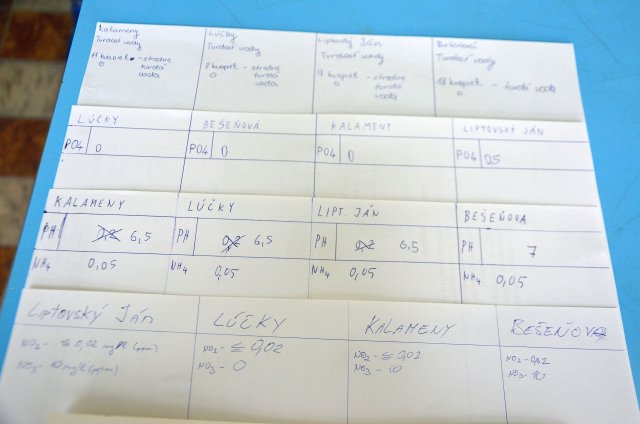 Kalameny
Tvrdosť vody
11 kvapiek - stredne
tvrdá
voda
Lúčky
Tvrdosť vody
8 kvapiek - stredne
tvrdá
voda
Liptovský Ján
Tvrdosť vody
9 kvapiek - stredne
tvrdá
voda
Bešeňová
Tvrdosť vody
kvapiek - tvrdá voda
LÚČKY
PO4 0
BEŠEŇOVÁ
PO4 0
KALAMENY
PO4 0
LIPTOVSKÝ JÁN
PO4 0,5
KALAMENY
PH 0,2 6,5
NH4 0,05
LÚČKY
PH 0,2 6,5
NH4 0,05
LIPT. JÁN
PH 0,2 6,5
NH4 0,05
BEŠEŇOVA
PH 7
NH4 0,05
LIPTOVSKÝ JÁN
NO2- ≤ 0,02 mg/l (ppm)
NO3- 10 mg/l (ppm)
LÚČKY
NO2- ≤ 0,02
NO3- 0
KALAMENY
NO2- ≤ 0,02
NO3- 10
BEŠEŇOVÁ
NO2- 0,02
NO3- 10